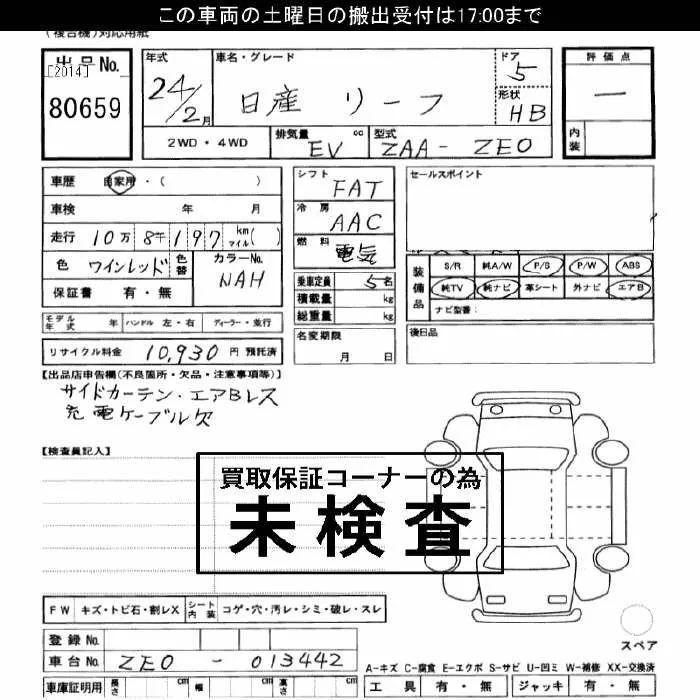 この車両の土曜日の搬出受付は17:00まで
(複合機)対応用紙
出品No.
[2014]
80659
年式
24/2月
車名・グレード
日産 リーフ
ドア
5
形状
HB
評価点
一
内装
2WD・4WD
排気量 cc
EV
型式
ZAA-ZE0
車歴 自家用・( )
車検 年 月
走行 10万8千197 km マイル( )
色 ワインレッド 色替 カラーNo. NAH
保証書 有・無
モデル年式 年 ハンドル 左・右 ディーラー・並行
リサイクル料金 10,930 円 預託済
シフト FAT
冷房 AAC
燃料 電気
乗車定員 5名
積載量 kg
総重量 kg
名変期限
月 日
セールスポイント
装備品
S/R 純A/W P/S P/W ABS
純TV 純ナビ 革シート 外ナビ エアB
ナビ型番:
後日品
【出品店申告欄(不良箇所・欠品・注意事項等)】
サイドカーテン・エアBレス
充電ケーブル欠
【検査員記入】
買取保証コーナーの為
未検査
FW キズ・トビ石・割レX シート内装 コゲ・穴・汚レ・シミ・破レ・スレ
登録No.
車台No. ZE0-013442
車庫証明用 長さ cm 幅 cm 高さ cm
スペア
A-キズ C-腐食 E-エクボ S-サビ U-凹ミ W-補修 XX-交換済
工具 有・無 ジャッキ 有・無